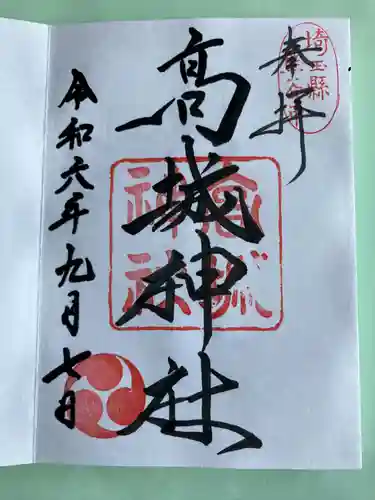 奉拝
埼玉縣
髙城神社
髙城神社
令和六年九月七日